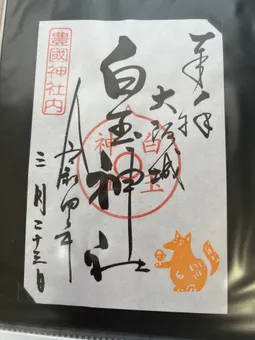 奉拝
大阪城
白玉神社
白玉
神社
豊國神社内
四年
三月二十三日